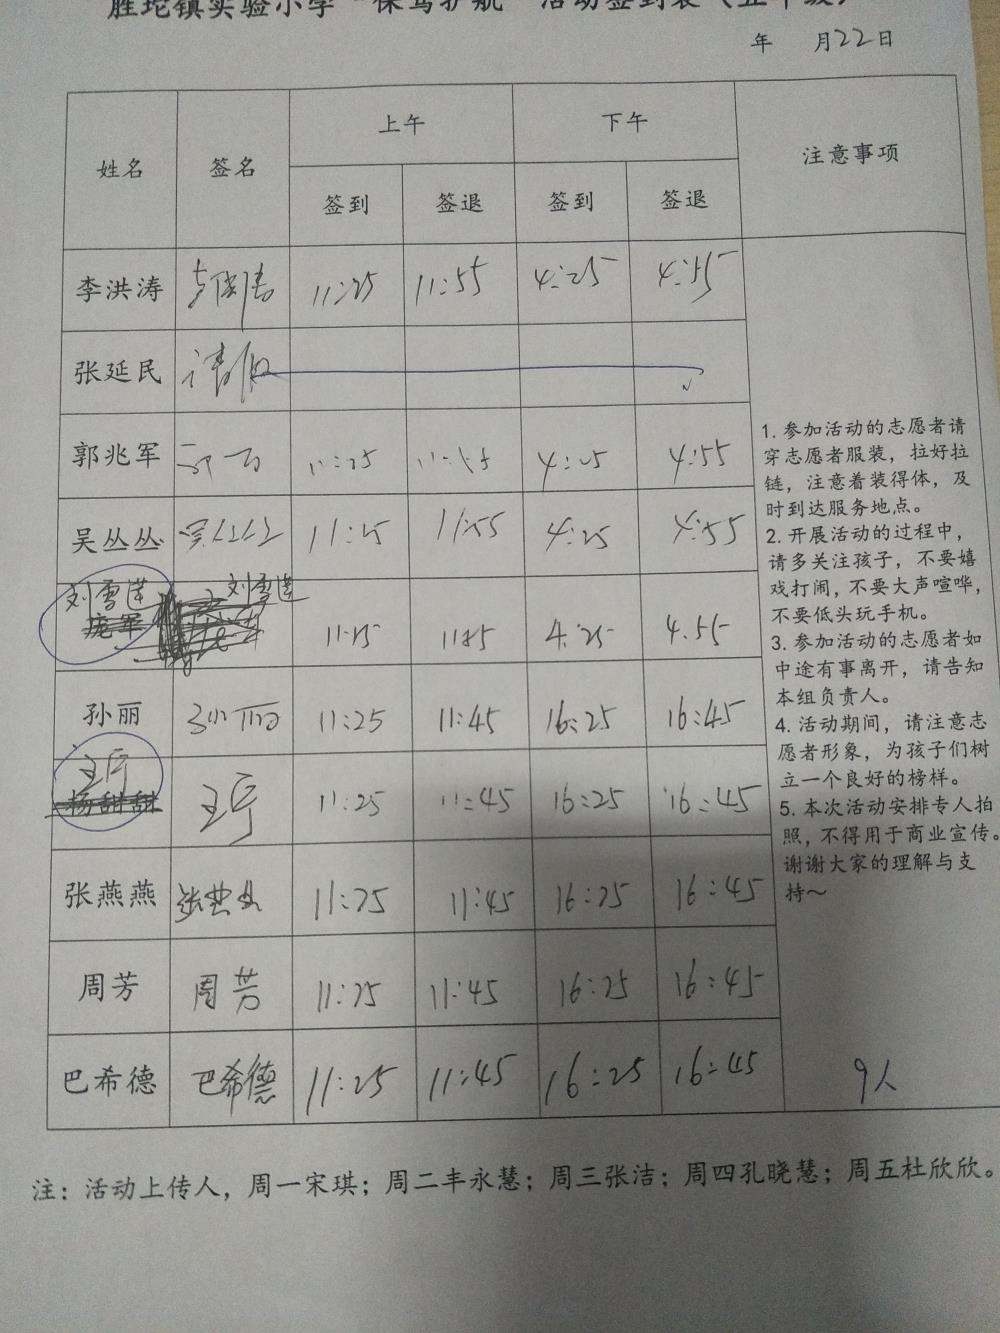 胜坨镇实验小学“保驾护航”活动签到表（五年级）
年 月22日
姓名 签名 上午 下午 注意事项
签到 签退 签到 签退
李洪涛 李洪涛 11:25 11:55 4:25 4:55
张延民 请假
郭兆军 11:25 11:55 4:25 4:55
吴丛丛 吴丛丛 11:25 11:55 4:25 4:55
刘雪莲 刘雪莲
庞军 11:25 1185 4:25 4.55
孙丽 孙丽 11:25 11:45 16:25 16:45
王厅
杨甜甜 王厅 11:25 11:45 16:25 16:45
张燕燕 张燕燕 11:25 11:45 16:25 16:45
周芳 周芳 11:25 11:45 16:25 16:45
巴希德 巴希德 11:25 11:45 16:25 16:45
1. 参加活动的志愿者请
穿志愿者服装，拉好拉
链，注意着装得体，及
时到达服务地点。
2. 开展活动的过程中，
请多关注孩子，不要嬉
戏打闹，不要大声喧哗，
不要低头玩手机。
3. 参加活动的志愿者如
中途有事离开，请告知
本组负责人。
4. 活动期间，请注意志
愿者形象，为孩子们树
立一个良好的榜样。
5. 本次活动安排专人拍
照，不得用于商业宣传。
谢谢大家的理解与支
持～
9人
注：活动上传人，周一宋琪；周二丰永慧；周三张洁；周四孔晓慧；周五杜欣欣。